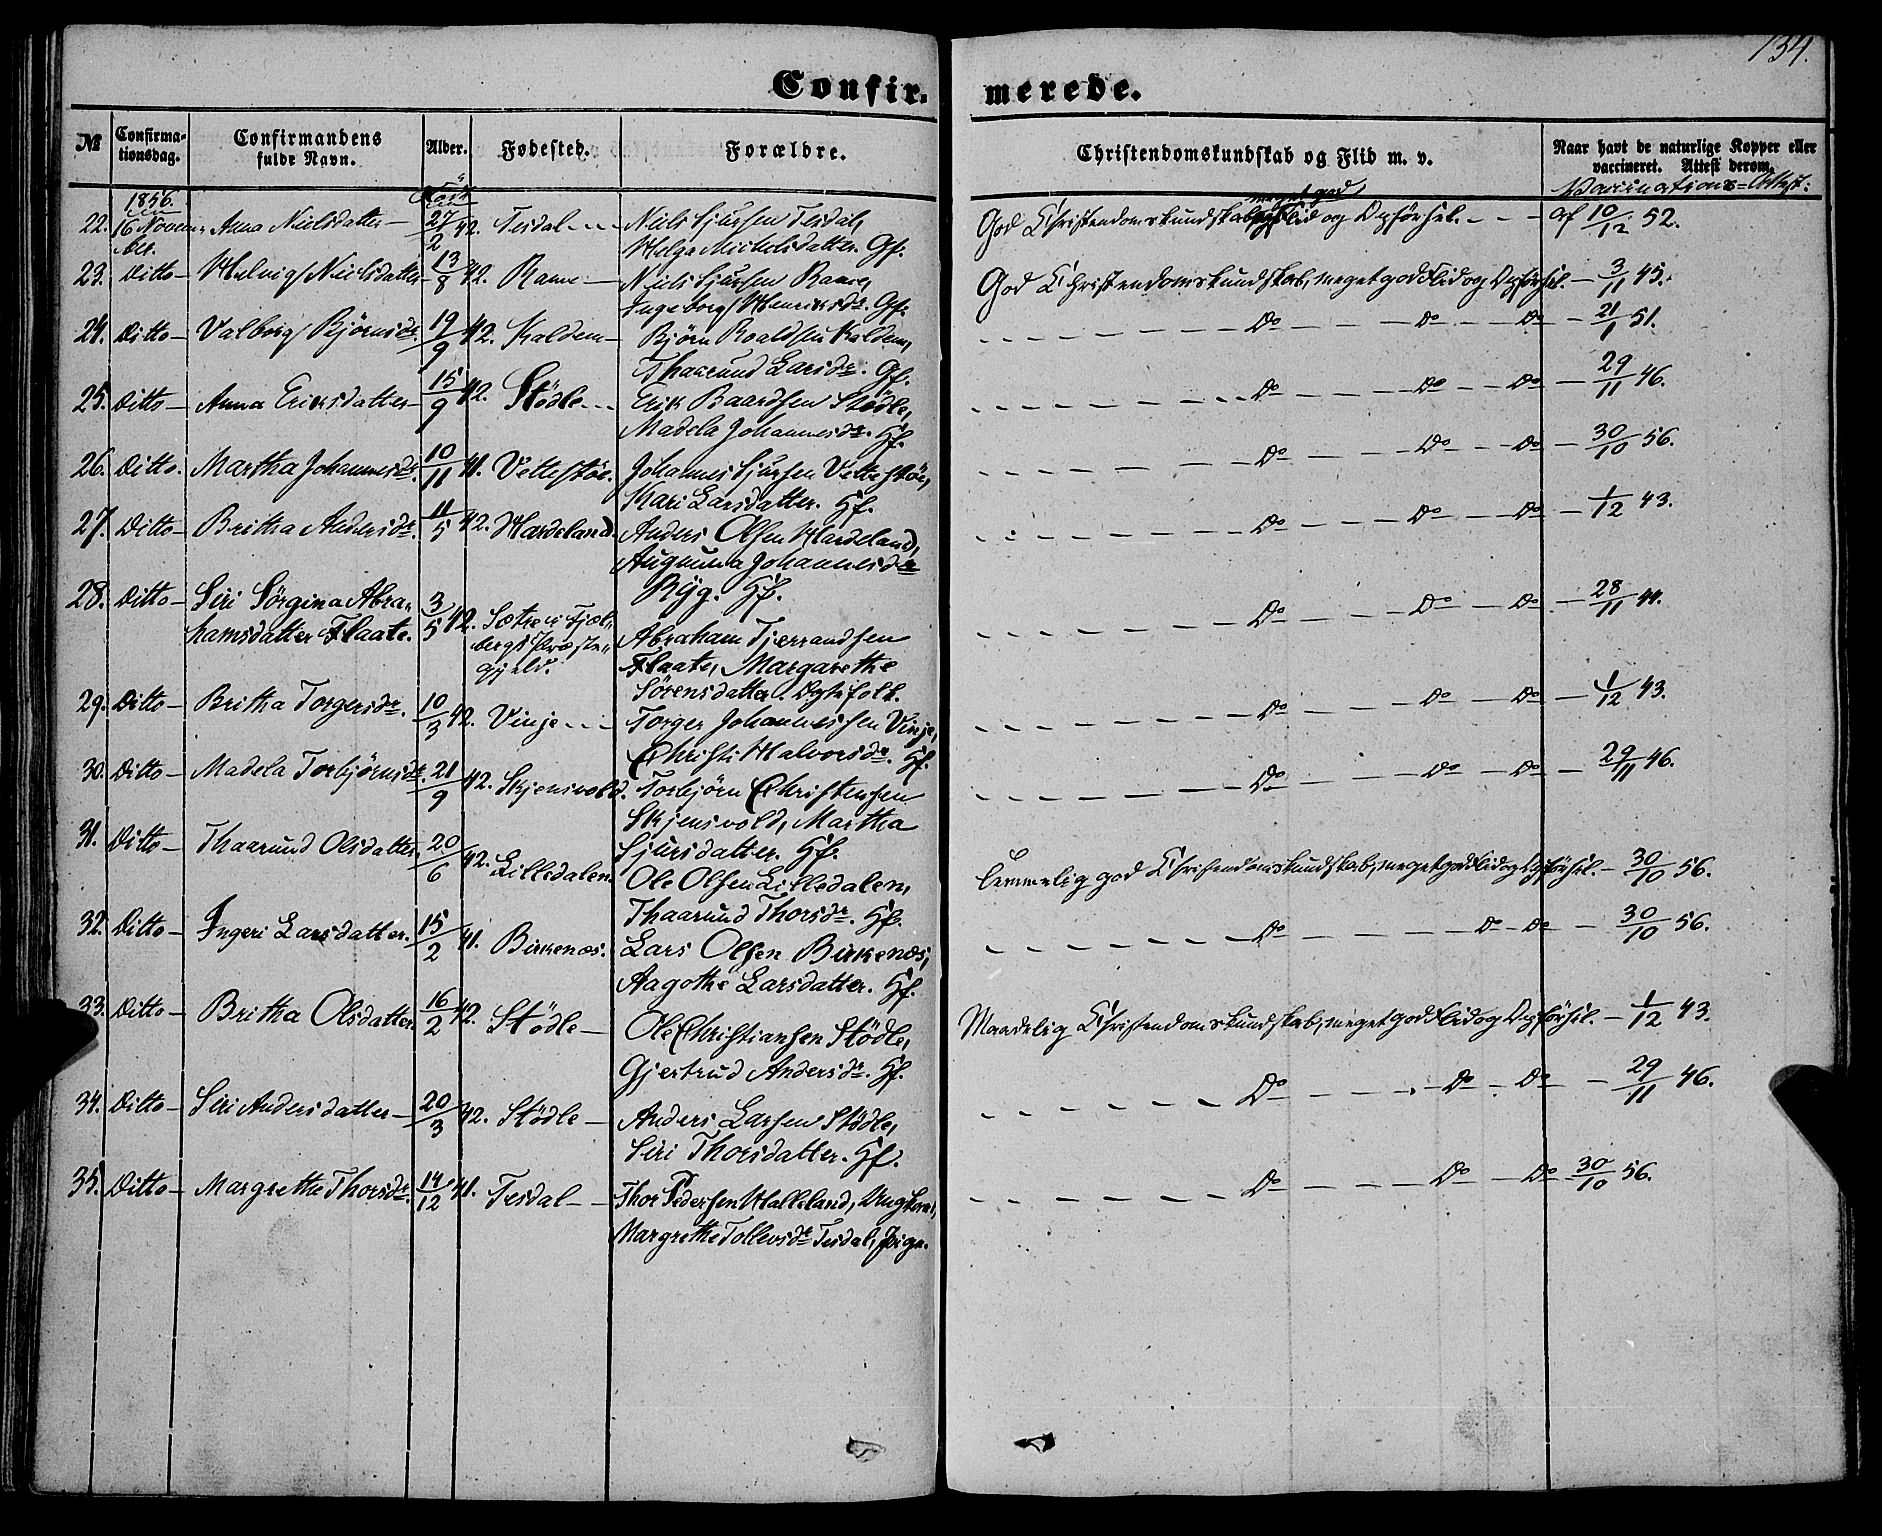 134.
Confir- merede.
№ Confirma-tionsdag. Confirmandens fulde Navn. Alder. Fødested. Forældre. Christendomskundskab og Flid m. v. Naar havt de naturlige Kopper eller vaccineret. Attest derom.
Vaccinations-Attest:
1856. Født
meget god
22. 16 Novem- Anna Nielsdatter — 27/2 42. Tesdal - - - Niels Sjursen Tesdal, God Christendomskundskab, Flid og Opførsel. - - - af 10/12 52.
ber. Helga Michelsdatter. Gf.
23. Ditto — Helvig Nielsdatter 13/8 42. Rame — Niels Sjursen Rame, God Christendomskundskab, meget god Flid og Opførsel. — 3/11 45.
Ingeborg Henriksdr. Gf.
24. Ditto — Valborg Bjørnsdr. 19/9 42. Kaldem — Bjørn Roaldsen Kaldem, Do — Do — Do — 21/1 51.
Thaarund Larsdr. Gf.
25. Ditto — Anna Eriksdatter — 15/9 42. Stødle - - - Erik Baardsen Stødle, Do — Do — Do — 29/11 46.
Madela Johannesdr. Gf.
26. Ditto. Martha Johannesdr. 10/11 41. Vettestøe. Johannes Sjursen Vettestøe, Do — Do — Do — 30/10 56.
Kari Larsdatter. Gf.
27. Ditto — Britha Andersdr. 11/5 42. Hardeland. Anders Olsen Hardeland, Do — Do — Do — 1/12 43.
Augunna Johannesdr
Ryg. Gf.
28. Ditto — Siri Sørgina Abra- 3/5 42. Sætre i Fjel- Do — Do — Do — 28/11 44.
hamsdatter Flaate. bergs Præste- Abraham Tjerrandsen
gjeld. Flaate, Margarethe
Sørensdatter. Ægtefolk.
29. Ditto — Britha Torgersdr. 10/3 42. Vinje - - - Torger Johannessen Vinje, Do — Do — Do — 1/12 43.
Christi Halvorsdr. Gf.
30. Ditto — Madela Torbjørnsdr. 21/9 42. Skjensvold. Torbjørn Christensen Do — Do — Do — 29/11 46.
Skjensvold, Martha
Sjursdatter. Gf.
31. Ditto — Thaarund Olsdatter 20/6 42. Lilledalen. Ole Olsen Lilledalen, Temmelig god Christendomskundskab, meget god Flid og Opførsel. — 30/10 56.
Thaarund Thorsdr. Gf.
32. Ditto — Ingeri Larsdatter. 15/2 41. Birkenæs. Lars Olsen Birkenæs, Do — Do — Do — 30/10 56.
Aagothe Larsdatter. Gf.
33. Ditto — Britha Olsdatter. 16/2 42. Stødle — Ole Christiansen Stødle, Maadelig Christendomskundskab, meget god Flid og Opførsel. — 1/12 43.
Gjertrud Andersdr. Gf.
34. Ditto — Siri Andersdatter — 20/3 42. Stødle — Anders Larsen Stødle, Do — Do — Do — 29/11 46.
Siri Thorsdatter. Gf.
35. Ditto — Margrethe Thorsdr. 14/12 41. Tesdal — Thor Pedersen Halleland, Ungkarl, Do — Do — Do 30/10 56.
Margrethe Tollevsdr Tesdal, Pige.